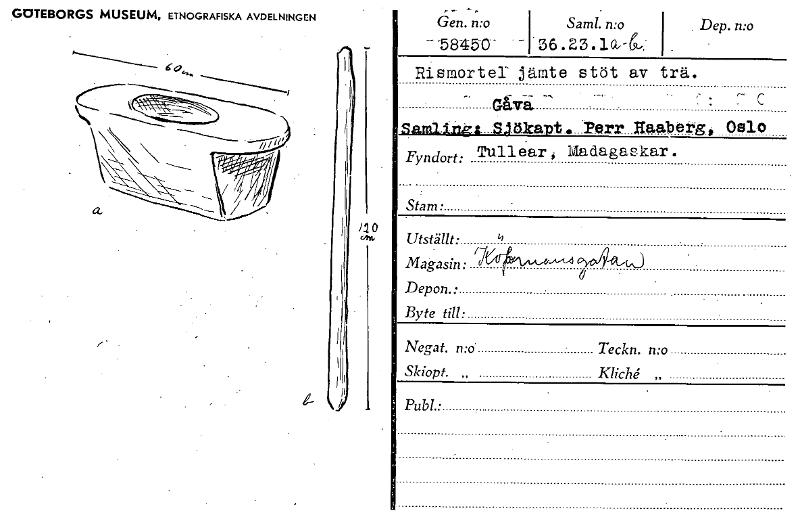 GÖTEBORGS MUSEUM, ETNOGRAFISKA AVDELNINGEN
60 cm
a
120 cm
b
Gen. n:o Saml. n:o Dep. n:o
58450 36.23.1a-b.
Rismortel jämte stöt av trä.
Gåva
Samling: Sjökapt. Perr Haaberg, Oslo
Fyndort: Tullear, Madagaskar.
Stam:
Utställt:
Magasin: Köpmansgatan
Depon.:
Byte till:
Negat. n:o Teckn. n:o
Skiopt. „ Kliché „
Publ.: